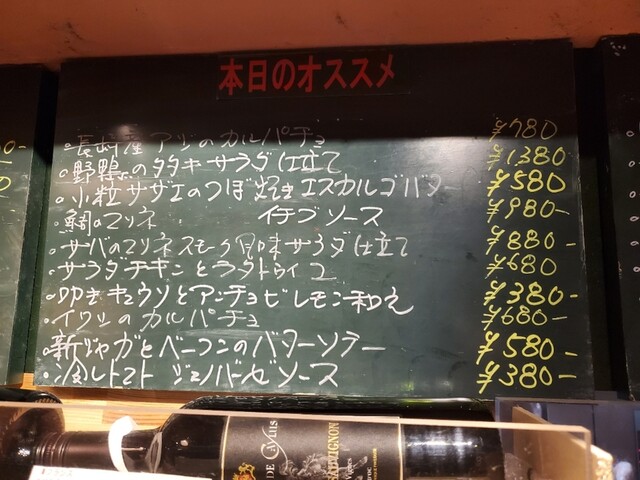 本日のオススメ
・長崎産 アジのカルパチョ ¥780
・野鴨のタタキ サラダ仕立て ¥1380
・小粒サザエのつぼ焼き エスカルゴバター ¥580
・鯛のマリネ イチゴソース ¥980-
・サバのマリネスモーク風味サラダ仕立て ¥880-
・サラダチキンとラタトゥイユ ¥680
・叩きキュウリとアンチョビレモン和え ¥380-
・イワシのカルパチョ ¥680-
・新ジャガとベーコンのバターソテー ¥580-
・冷しトマト ジェノバーゼソース ¥380-
DE CAVIUS
SAUVIGNON